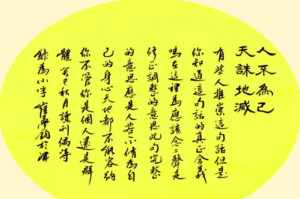 人不為己
天誅地滅
有些人推崇這句話但是
你知道這句話的真正含義
嗎在這裡為應該念二聲是
修正調整的意思說的完整
的意思應是人若不修為自
己的身心天地都不能容納
你不管你是個人還是群
體 秋月讀到偶得
為小字